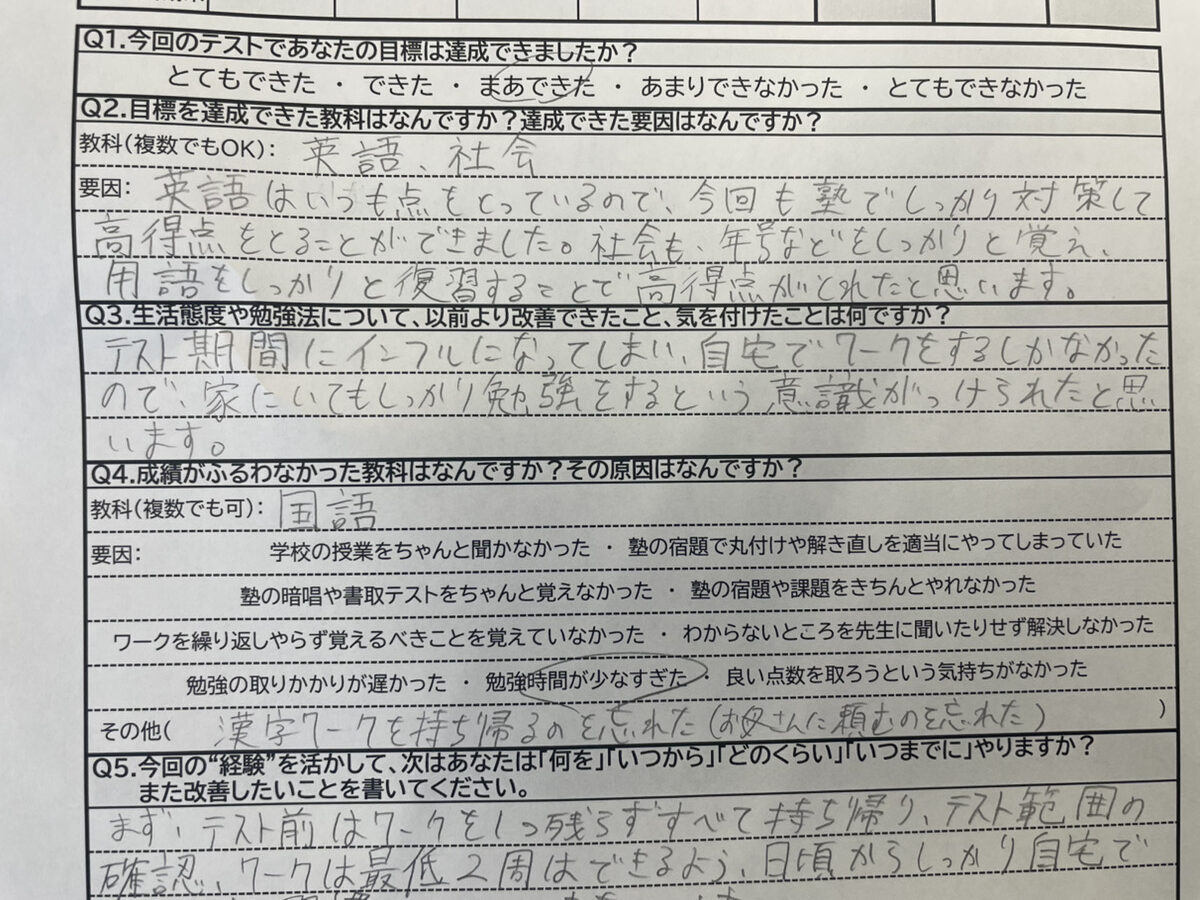 Q1.今回のテストであなたの目標は達成できましたか？
とてもできた ・ できた ・ まあできた ・ あまりできなかった ・ とてもできなかった
Q2.目標を達成できた教科はなんですか？達成できた要因はなんですか？
教科(複数でもOK)： 英語、社会
要因： 英語はいつも点をとっているので、今回も塾でしっかり対策して
高得点をとることができました。社会も、年号などをしっかりと覚え、
用語をしっかりと復習することで高得点がとれたと思います。
Q3.生活態度や勉強法について、以前より改善できたこと、気を付けたことは何ですか？
テスト期間にインフルになってしまい、自宅でワークをするしかなかった
ので、家にいてもしっかり勉強をするという意識がつけられたと思
います。
Q4.成績がふるわなかった教科はなんですか？その原因はなんですか？
教科(複数でも可)： 国語
要因： 学校の授業をちゃんと聞かなかった ・ 塾の宿題で丸付けや解き直しを適当にやってしまっていた
塾の暗唱や書取テストをちゃんと覚えなかった ・ 塾の宿題や課題をきちんとやれなかった
ワークを繰り返しやらず覚えるべきことを覚えていなかった ・ わからないところを先生に聞いたりせず解決しなかった
勉強の取りかかりが遅かった ・ 勉強時間が少なすぎた ・ 良い点数を取ろうという気持ちがなかった
その他( 漢字ワークを持ち帰るのを忘れた(お母さんに頼むのを忘れた) )
Q5.今回の“経験”を活かして、次はあなたは「何を」「いつから」「どのくらい」「いつまでに」やりますか？
また改善したいことを書いてください。
まず、テスト前はワークを1つ残らずすべて持ち帰り、テスト範囲の
確認、ワークは最低2周はできるよう、日頃からしっかり自宅で